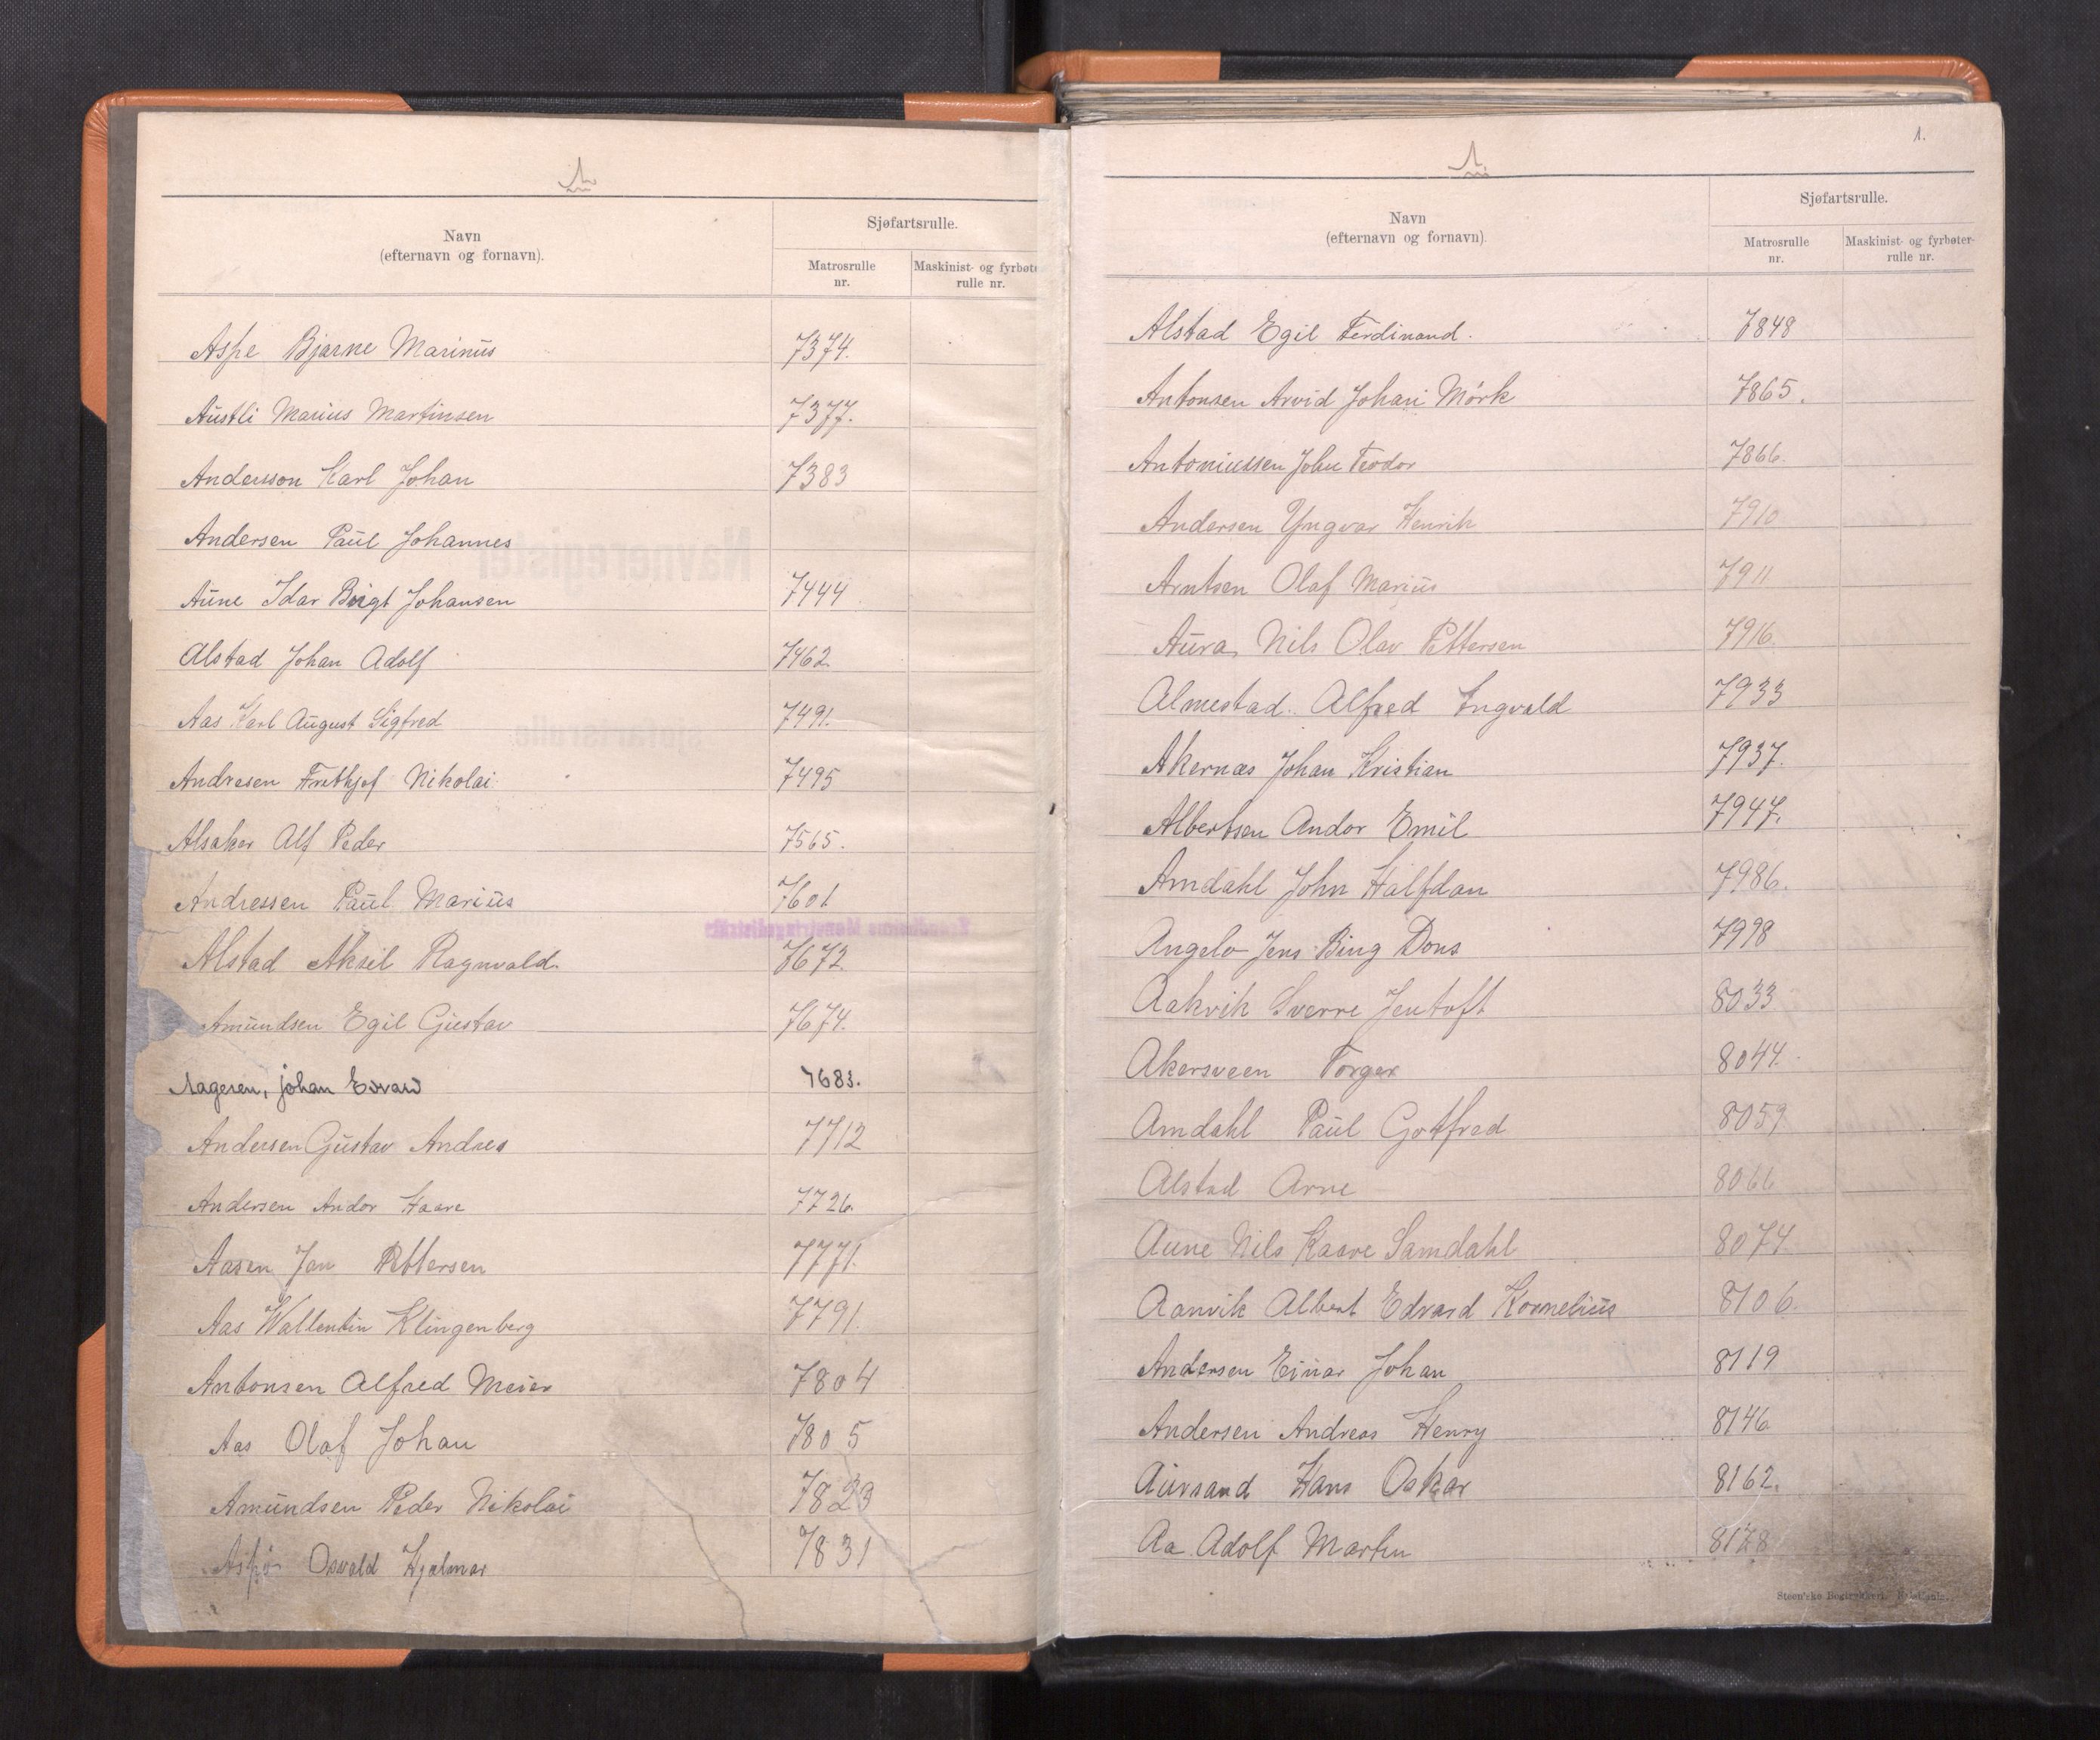 A
Navn
(efternavn og fornavn).
Sjøfartsrulle.
Matrosrulle nr.
Maskinist- og fyrbøte rulle nr.
Aspe Bjarne Marinus 7374.
Austli Marius Martinsen 7377.
Andersson Karl Johan 7383
Andersen Paul Johannes
Aune Idar Johansen 7444
Alstad Johan Adolf 7462.
Aas Karl August Sigfred 7491.
Andresen Frithjof Nikolai 7495
Alsaker Alf Peder 7565.
Andressen Paul Marius 7601
Alstad Aksil Ragnvald. 7672.
Amundsen Egil Gustav 7674.
Aagesen, Johan Edvard 7683.
Andersen Gustav Andrea 7712
Andersen Andor Kaare 7726.
Aasen Jan Pettersen 7771.
Aas Wallentin Klingenberg 7791.
Antonsen Alfred Meier 7804
Aas Olaf Johan 7805
Amundsen Peder Nikolai 7823
Osvald Hjalmar 7831
1.
A
Navn
(efternavn og fornavn).
Sjøfartsrulle.
Matrosrulle nr.
Maskinist- og fyrbøter- rulle nr.
Alstad Egil Ferdinand. 7848
Antonsen Arvid Johan Mörk 7865.
Antoniussen John Teodor 7866.
Andersen Yngvar Henrik 7910
Arntsen Olaf Marius 7911
Aura Nils Olav Pettersen 7916.
Almestad Alfred Ingvald 7933
Akernæs Johan Kristian 7937.
Albertsen Andor Emil 7947.
Amdahl John Halfdan 7986.
Angelo Jens Bing Dons 7998
Aakvik Sverre Jentoft 8033
Akersveen Torger 8044.
Amdahl Paul Gotfred 8059
Alstad Arne 8066
Aune Nils Kaare Samdahl 8074
Aanvik Albert Edvard Kornelius 8106.
Andersen Einar Johan 8119
Andersen Andreas Henry 8146
Aursand Hans Oskar 8162.
Aa Adolf Martin 8178
Steen'ske Bogtrykkeri